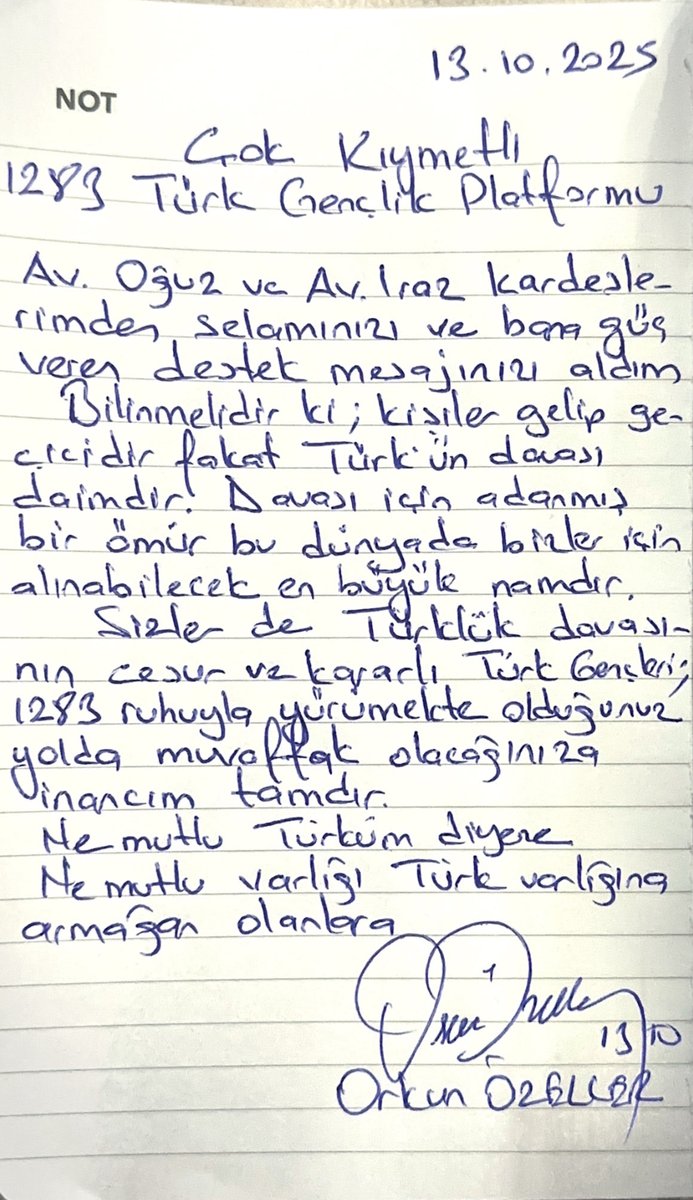 13.10.2025
NOT
Çok Kıymetli
1283 Türk Gençlik Platformu
Av. Oğuz ve Av. Iraz kardeşle-
rimden selamınızı ve bana güç
veren destek mesajınızı aldım
Bilinmelidir ki; kişiler gelip ge-
çicidir fakat Türk'ün davası
daimdir! Davası için adanmış
bir ömür bu dünyada bizler için
alınabilecek en büyük namdır.
Sizler de Türklük davası-
nın cesur ve kararlı Türk Gençleri;
1283 ruhuyla yürümekte olduğunuz
yolda muvaffak olacağınıza
inancım tamdır.
Ne mutlu Türküm diyene
Ne mutlu varlığı Türk varlığına
armağan olanlara
13/10
Orkun ÖZELLER